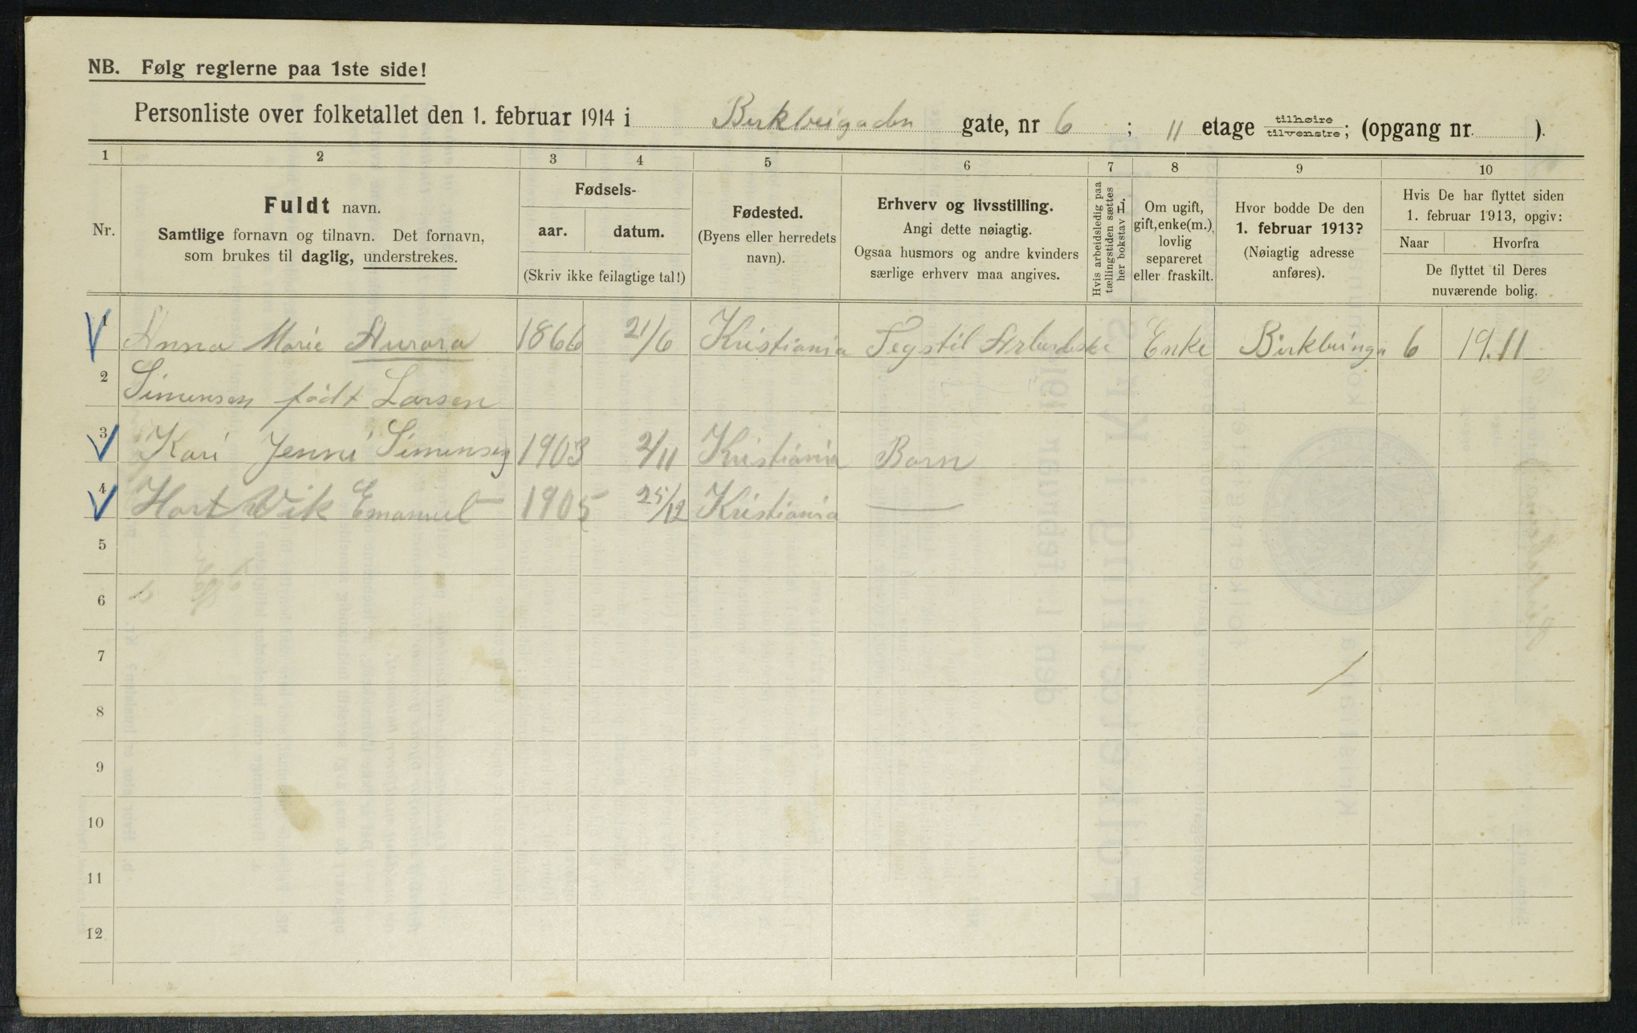 NB. Følg reglerne paa 1ste side!
Personliste over folketallet den 1. februar 1914 i Birkbeigaden gate, nr 6 ; 11 etage tilhøire tilvenstre; (opgang nr. ).
1 2 3 4 5 6 7 8 9 10
Nr.
Fuldt navn.
Samtlige fornavn og tilnavn. Det fornavn,
som brukes til daglig, understrekes.
Fødsels-
aar. datum.
(Skriv ikke feilagtige tal!)
Fødested.
(Byens eller herredets
navn).
Erhverv og livsstilling.
Angi dette nøiagtig.
Ogsaa husmors og andre kvinders
særlige erhverv maa angives.
Hvis arbeidsledig paa
tællingstiden sættes
her bokstav L.
Om ugift,
gift, enke(m.),
lovlig
separeret
eller fraskilt.
Hvor bodde De den
1. februar 1913?
(Nøiagtig adresse
anføres).
Hvis De har flyttet siden
1. februar 1913, opgiv:
Naar Hvorfra
De flyttet til Deres
nuværende bolig.
1 Anna Marie Aurora 1866 21/6 Kristiania Enke 6 19.11
2 Simensen født Larsen
3 Kari Jenni Simensen 1903 2/11 Kristiania Barn
4 Hart Vik Emanuel 1905 25/12 Kristiania —
5
6
7
8
9
10
11
12